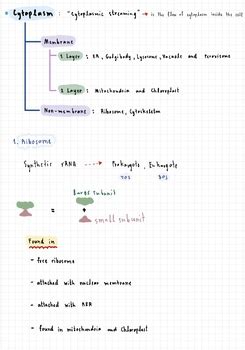 Cytoplasm : "Cytoplasmic streaming" → is the flow of cytoplasm inside the cell
Membrane
1 Layer : ER, Golgibody, Lysosome, Vacuole and Peroxisome
2 Layer : Mitochondria and Chloroplast
Non-membrane : Ribosome, Cytoskeleton
1. Ribosome
Synthetic rRNA → Prokaryote, Eukaryote
70S 80S
Large subunit
= +
small subunit
Found in
- free ribosome
- attached with nuclear membrane
- attached with RER
- found in mitochondria and Chloroplast